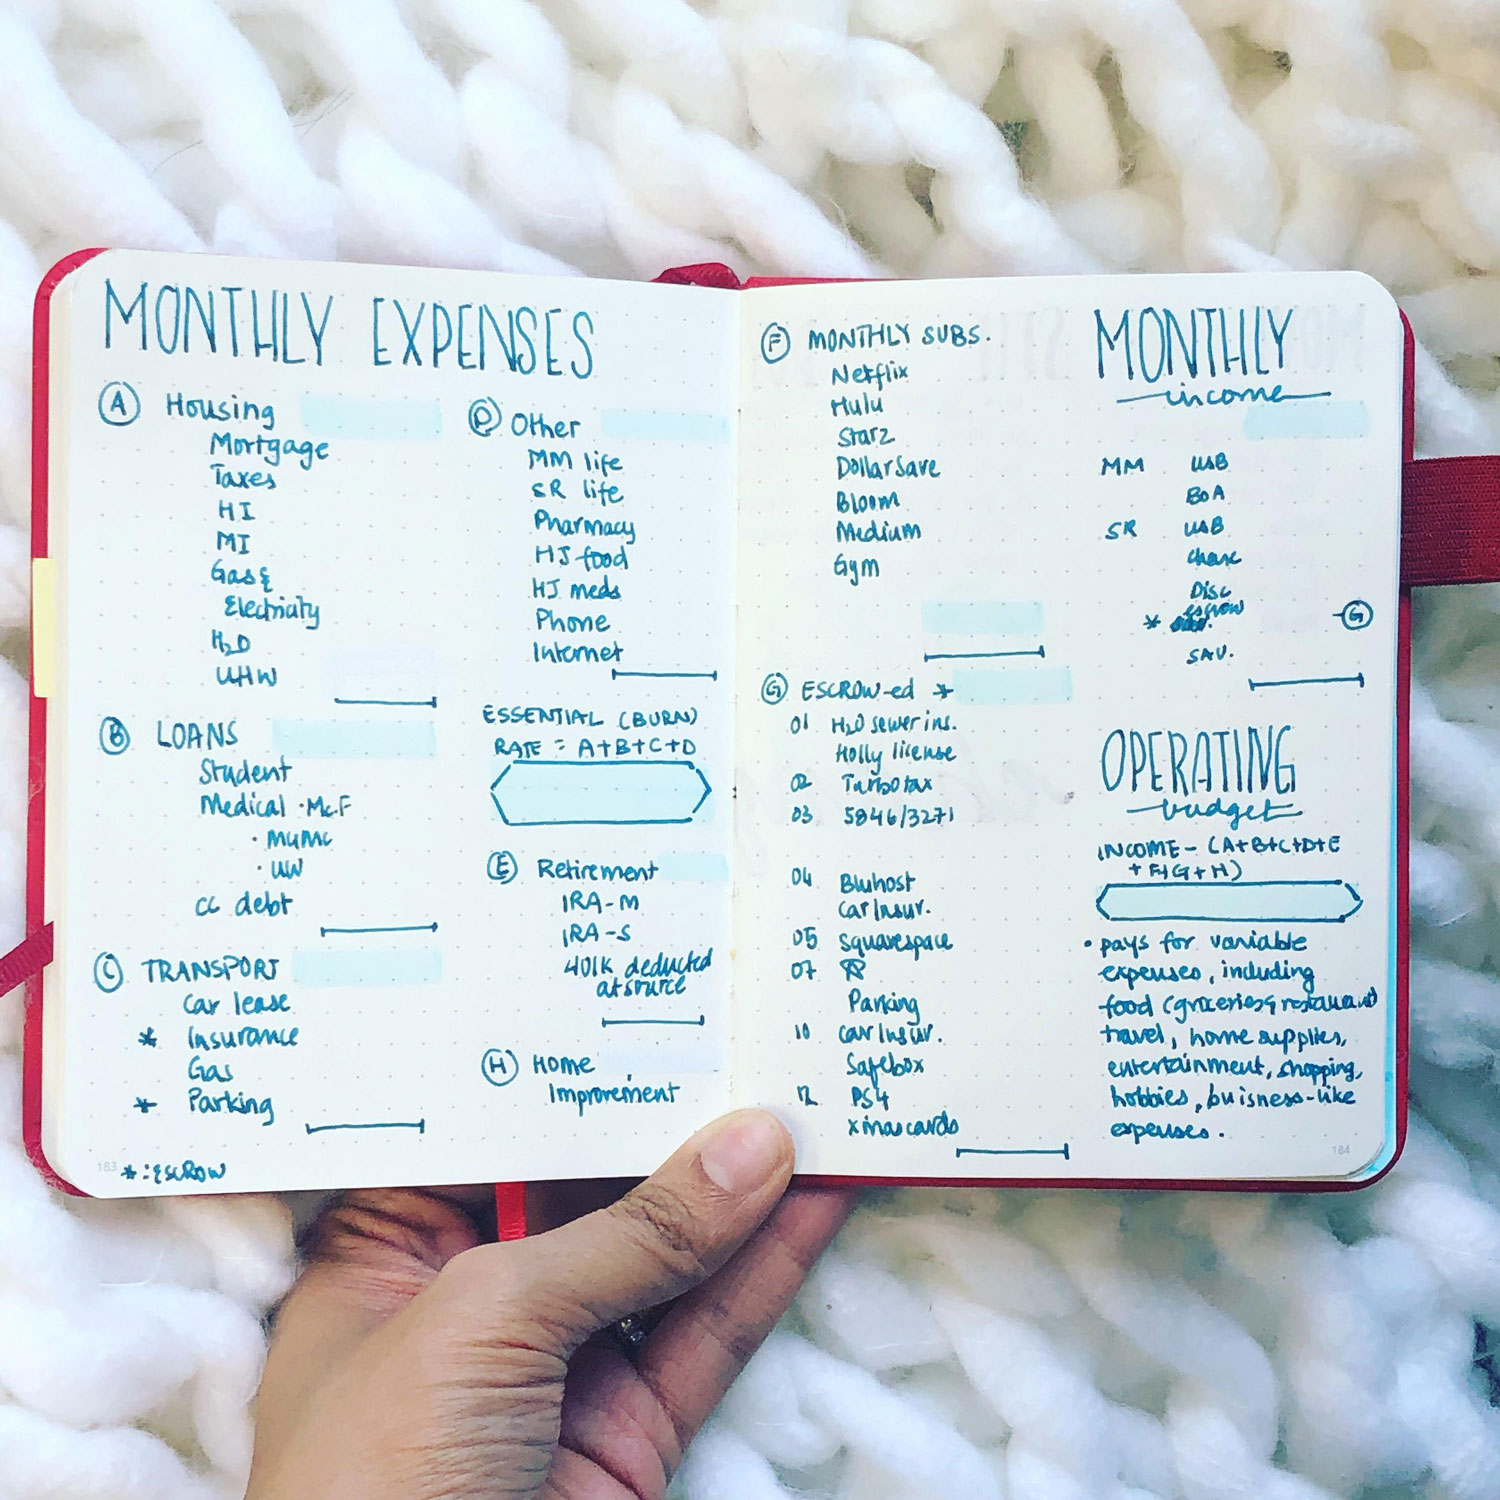 MONTHLY EXPENSES
A Housing
Mortgage
Taxes
HI
MI
Gas &
Electricity
H2O
UHW
B LOANS
Student
Medical · McF
· MUMC
· UW
CC debt
C TRANSPORT
Car lease
* Insurance
Gas
* Parking
183 * : ESCROW
D Other
MM life
SR life
Pharmacy
HJ food
HJ meds
Phone
Internet
ESSENTIAL (BURN)
RATE = A+B+C+D
E Retirement
IRA-M
IRA-S
401K deducted
at source
H Home
Improvement
F MONTHLY SUBS.
Netflix
Hulu
Starz
DollarSave
Bloom
Medium
Gym
G ESCROW-ed *
01 H2O sewer ins.
Holly license
02 Turbotax
03 5846/3271
04 Bluhost
Car Insur.
05 Squarespace
07
Parking
10 Car Insur.
Safebox
12 PS4
xmas cards
MONTHLY
income
MM USB
BoA
SR USB
Chase
Disc
* escrow G
SAV.
OPERATING
budget
INCOME - (A+B+C+D+E
+F+G+H)
• pays for variable
expenses, including
food (groceries & restaurant)
travel, home supplies,
entertainment, shopping,
hobbies, buisness-like
expenses.
184